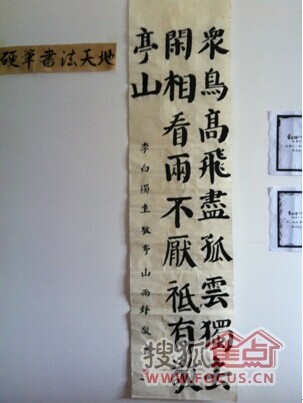 硬筆書法天地
衆鳥高飛盡孤雲獨去
閑相看兩不厭祗有敬
亭山
李白獨坐敬亭山
搜狐焦点
WWW.FOCUS.CN